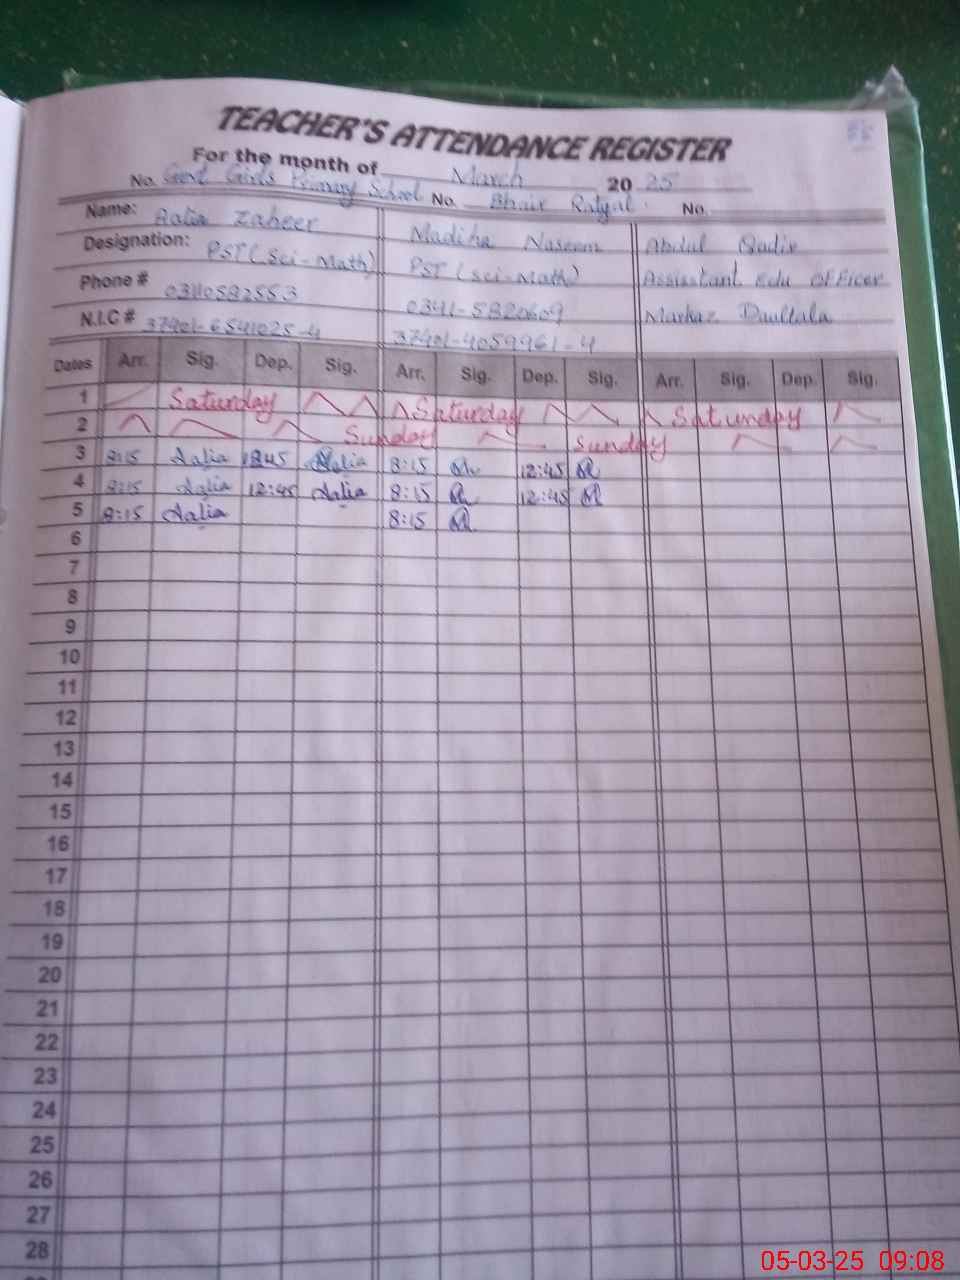 TEACHER'S ATTENDANCE REGISTER
For the month of March 20 25
No. Govt Girls Primary School No. Bhair Ratyal. No.
Name: Aalia Zaheer Madiha Naseem Abdul Qadir
Designation: PST (Sci-Math) PST (Sci-Math) Assistant Edu Officer
Phone # 0341-5820609 Markaz Daultala
N.I.C # 37401-6541025-4 37401-4059961-4
Dates Arr. Sig. Dep. Sig. Arr. Sig. Dep. Sig. Arr. Sig. Dep. Sig.
1 Saturday Saturday Saturday
2 Sunday Sunday
3 8:15 Aalia 12:45 Aalia 8:15 12:45
4 8:15 Aalia 12:45 Aalia 8:15 12:45
5 8:15 Aalia 8:15
6
7
8
9
10
11
12
13
14
15
16
17
18
19
20
21
22
23
24
25
26
27
28
05-03-25 09:08